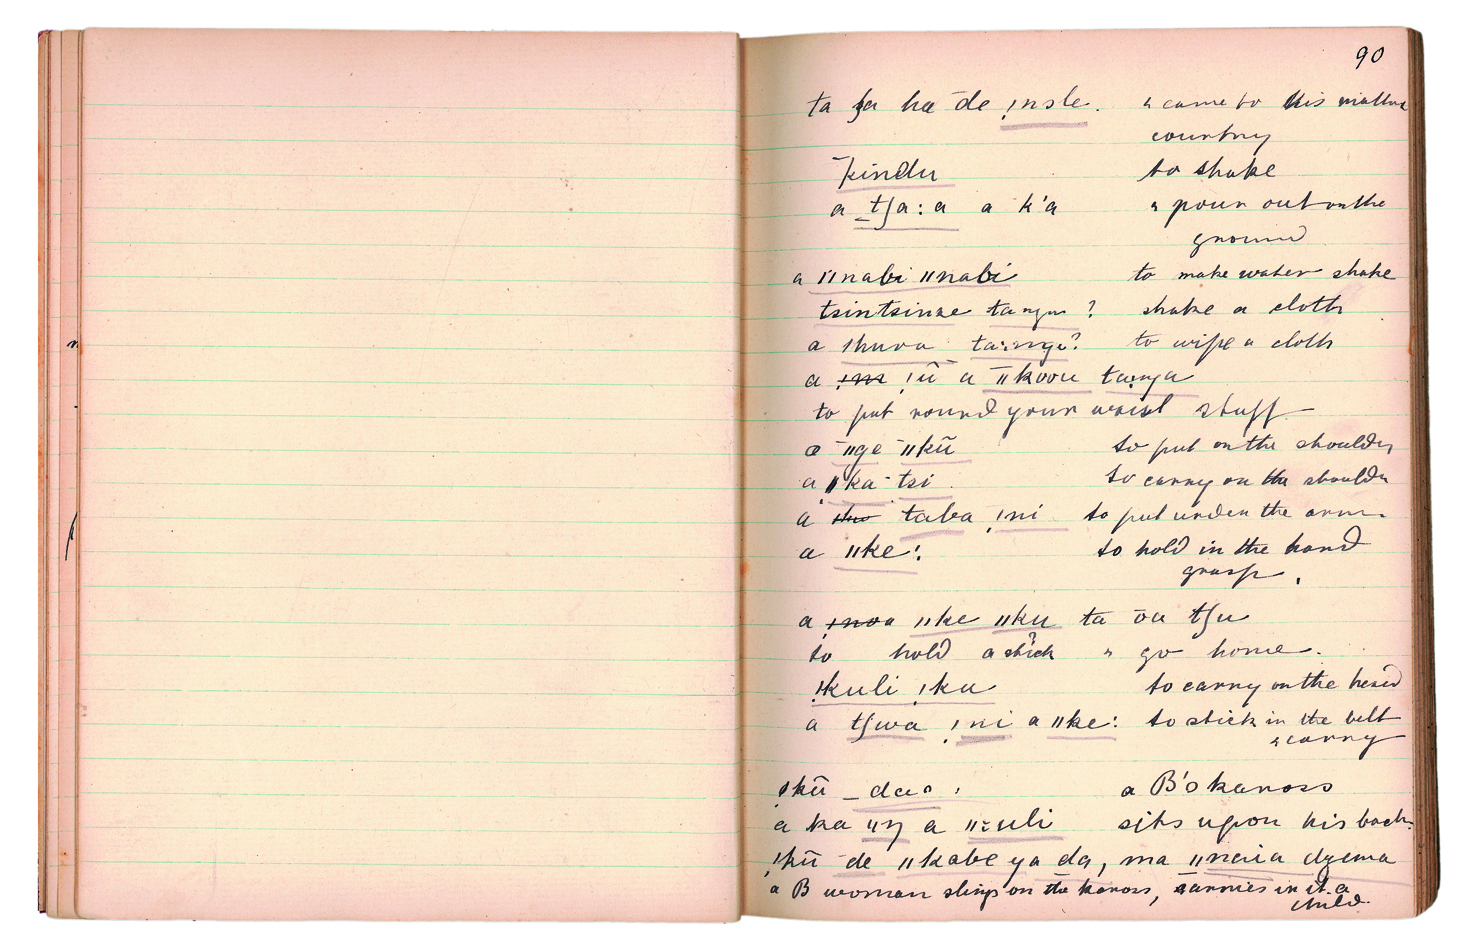 90
ta ʃa ha de !nsle. & came to his mother
country
kindu to shake
a tʃa:a a k'a & pour out on the
ground
a ǁnabi ǁnabi to make water shake
tsintsinze tanga ? shake a cloth
a shura ta:nga? to wipe a cloth
a !ū a ǁkoou tanga
to put round your waist stuff
a ǁge ǁkū to put on the shoulder
a ǁka tsi to carry on the shoulder
a taba !ni to put under the arm.
a ǁke: to hold in the hand
grasp.
a !noa ǁke ǁku ta ōa tʃu
to hold a stick & go home.
!kuli !ku to carry on the head
a tʃwa !ni a ǁke: to stick in the belt
& carry
!kū – dao : a B's kaross
a ka ǁŋ a ǁ:uli sits upon his back.
!kū de ǁkabe ya da, ma ǁnaia dzema
a B woman slings on the kaross, carries in it a
child.